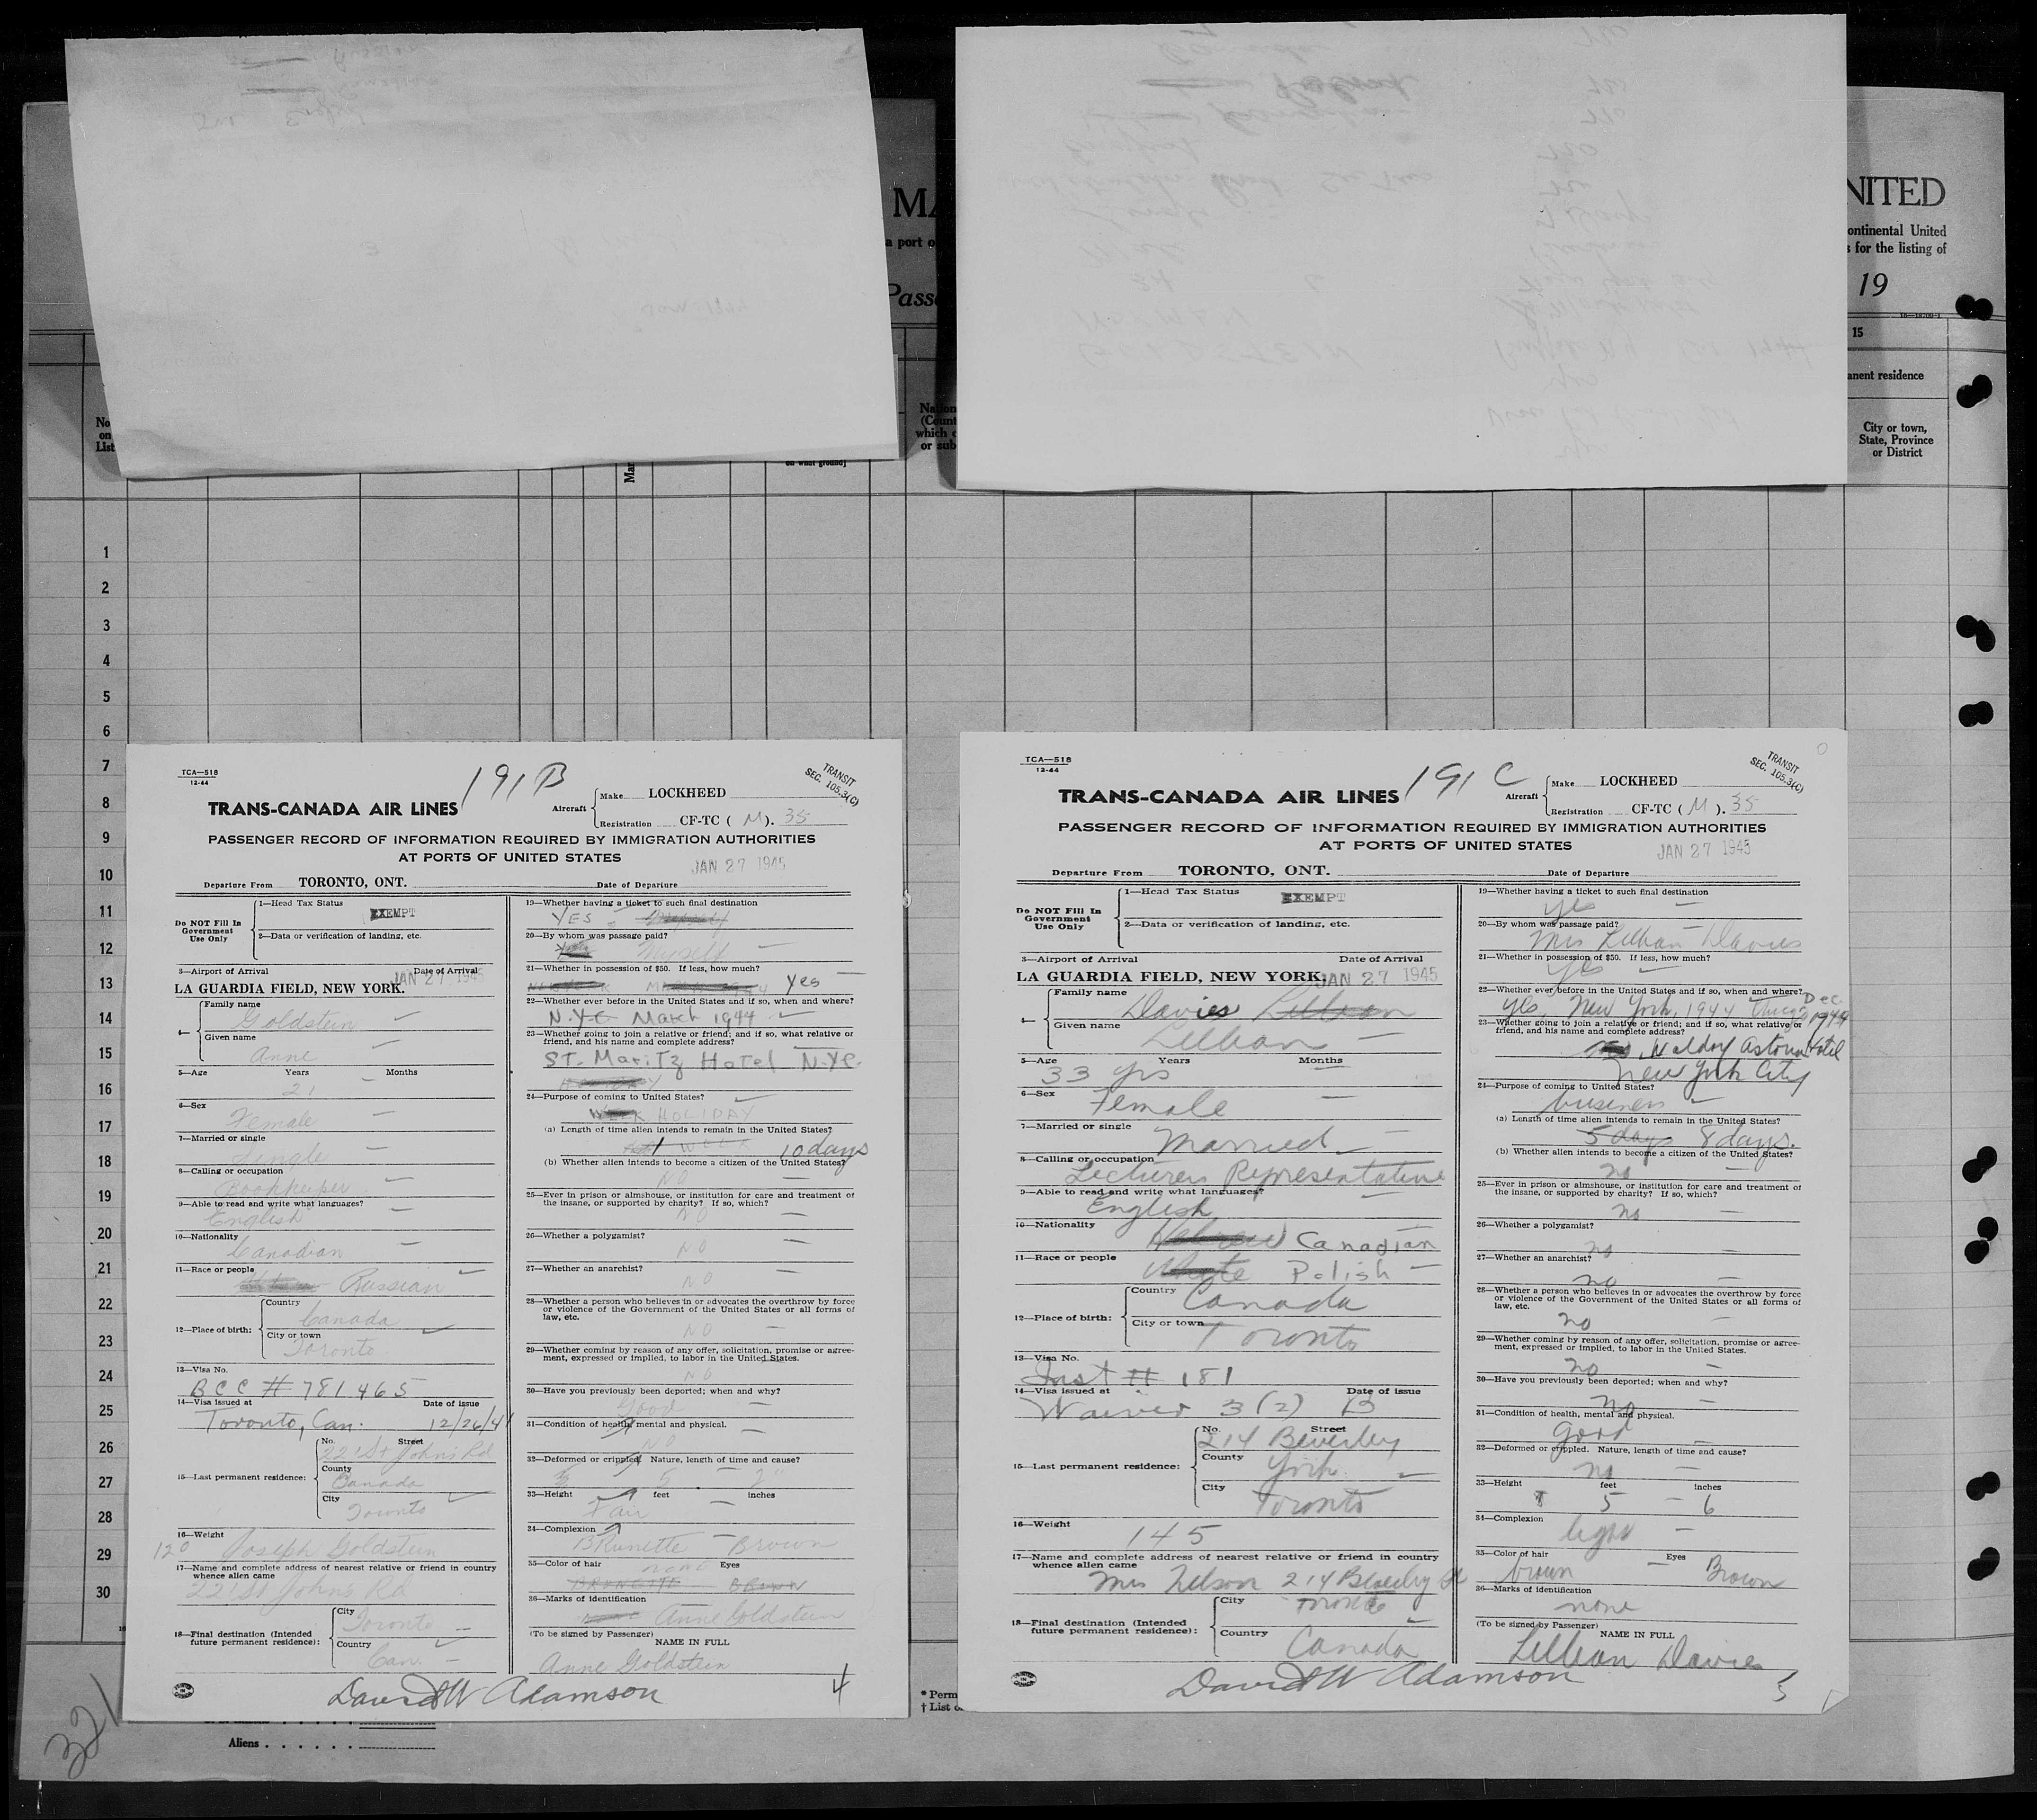 MA
a port o
Passe
NITED
ontinental United
s for the listing of
19
15
anent residence
City or town,
State, Province
or District
No
on
List
Mar
on what ground]
Nation
(Count
which c
or sub
1
2
3
4
5
6
7
8
9
10
11
12
13
14
15
16
17
18
19
20
21
22
23
24
25
26
27
28
29
30
TCA—518
12-44
191 B
TRANSIT
SEC. 105.3(C)
TRANS-CANADA AIR LINES
Aircraft
Make LOCKHEED
Registration CF-TC ( M ). 35
PASSENGER RECORD OF INFORMATION REQUIRED BY IMMIGRATION AUTHORITIES
AT PORTS OF UNITED STATES
JAN 27 1945
Departure From TORONTO, ONT. Date of Departure
Do NOT Fill In
Government
Use Only
1—Head Tax Status
EXEMPT
2—Data or verification of landing, etc.
3—Airport of Arrival Date of Arrival
LA GUARDIA FIELD, NEW YORK. JAN 27 1945
4—
Family name
Goldstein
Given name
Anne
5—Age Years Months
21
6—Sex
Female
7—Married or single
Single
8—Calling or occupation
Bookkeeper
9—Able to read and write what languages?
English
10—Nationality
Canadian
11—Race or people
Russian
12—Place of birth:
Country
Canada
City or town
Toronto
13—Visa No.
BCC # 781465
14—Visa issued at Date of issue
Toronto, Can. 12/26/41
15—Last permanent residence:
No. Street
221 St Johns Rd
County
Canada
City
Toronto
16—Weight
120 Joseph Goldstein
17—Name and complete address of nearest relative or friend in country
whence alien came
221 St Johns Rd
18—Final destination (Intended
future permanent residence):
City
Toronto
Country
Can.
19—Whether having a ticket to such final destination
YES
20—By whom was passage paid?
Myself
21—Whether in possession of $50. If less, how much?
Yes
22—Whether ever before in the United States and if so, when and where?
N.Y.C. March 1944
23—Whether going to join a relative or friend; and if so, what relative or
friend, and his name and complete address?
ST. Moritz Hotel N.Y.C.
24—Purpose of coming to United States?
HOLIDAY
(a) Length of time alien intends to remain in the United States?
1 WEEK 10 days
(b) Whether alien intends to become a citizen of the United States?
NO
25—Ever in prison or almshouse, or institution for care and treatment of
the insane, or supported by charity? If so, which?
NO
26—Whether a polygamist?
NO
27—Whether an anarchist?
NO
28—Whether a person who believes in or advocates the overthrow by force
or violence of the Government of the United States or all forms of
law, etc.
NO
29—Whether coming by reason of any offer, solicitation, promise or agree-
ment, expressed or implied, to labor in the United States.
NO
30—Have you previously been deported; when and why?
Good
31—Condition of health, mental and physical.
NO
32—Deformed or crippled. Nature, length of time and cause?
5 2"
33—Height feet inches
Fair
34—Complexion
BRunette Brown
35—Color of hair Eyes
none
BRUNETTE BROWN
36—Marks of identification
Anne Goldstein
(To be signed by Passenger)
NAME IN FULL
Anne Goldstein
David W Adamson
4
TCA—518
12-44
191 C
TRANSIT
SEC. 105.3(C)
TRANS-CANADA AIR LINES
Aircraft
Make LOCKHEED
Registration CF-TC ( M ). 35
PASSENGER RECORD OF INFORMATION REQUIRED BY IMMIGRATION AUTHORITIES
AT PORTS OF UNITED STATES
JAN 27 1945
Departure From TORONTO, ONT. Date of Departure
Do NOT Fill In
Government
Use Only
1—Head Tax Status
EXEMPT
2—Data or verification of landing, etc.
3—Airport of Arrival Date of Arrival
LA GUARDIA FIELD, NEW YORK. JAN 27 1945
4—
Family name
Davies Lillian
Given name
Lillian
5—Age Years Months
33 yrs
6—Sex
Female
7—Married or single
Married
8—Calling or occupation
Lecturers Representative
9—Able to read and write what languages?
English
10—Nationality
Hebrew Canadian
11—Race or people
White Polish
12—Place of birth:
Country
Canada
City or town
Toronto
13—Visa No.
Inst # 181
14—Visa issued at Date of issue
Waiver 3 (2) B
15—Last permanent residence:
No. Street
214 Beverley
County
York
City
Toronto
16—Weight
145
17—Name and complete address of nearest relative or friend in country
whence alien came
Mrs Nelson 214 Beverley St
18—Final destination (Intended
future permanent residence):
City
Toronto
Country
Canada
19—Whether having a ticket to such final destination
yes
20—By whom was passage paid?
Mrs Lillian Davies
21—Whether in possession of $50. If less, how much?
yes
22—Whether ever before in the United States and if so, when and where?
yes, New York, 1944 Dec 1944
23—Whether going to join a relative or friend; and if so, what relative or
friend, and his name and complete address?
Waldorf Astoria Hotel
New York City
24—Purpose of coming to United States?
business
(a) Length of time alien intends to remain in the United States?
5 days 8 days.
(b) Whether alien intends to become a citizen of the United States?
no
25—Ever in prison or almshouse, or institution for care and treatment of
the insane, or supported by charity? If so, which?
no
26—Whether a polygamist?
no
27—Whether an anarchist?
no
28—Whether a person who believes in or advocates the overthrow by force
or violence of the Government of the United States or all forms of
law, etc.
no
29—Whether coming by reason of any offer, solicitation, promise or agree-
ment, expressed or implied, to labor in the United States.
no
30—Have you previously been deported; when and why?
no
31—Condition of health, mental and physical.
good
32—Deformed or crippled. Nature, length of time and cause?
no
33—Height feet inches
5 6
34—Complexion
light
35—Color of hair Eyes
brown Brown
36—Marks of identification
none
(To be signed by Passenger)
NAME IN FULL
Lillian Davies
David W Adamson
5
* Perm
† List o
Aliens
321